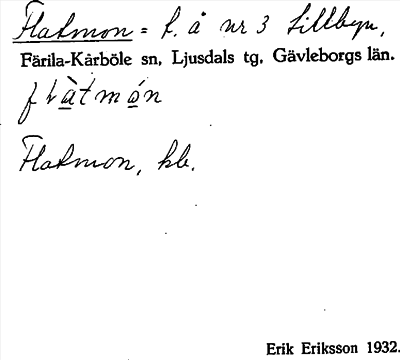 Flatmon = l. å nr 3 Lillbyn,
Färila-Kårböle sn, Ljusdals tg, Gävleborgs län.
flàtmón
Flatmon, kb.
Erik Eriksson 1932.